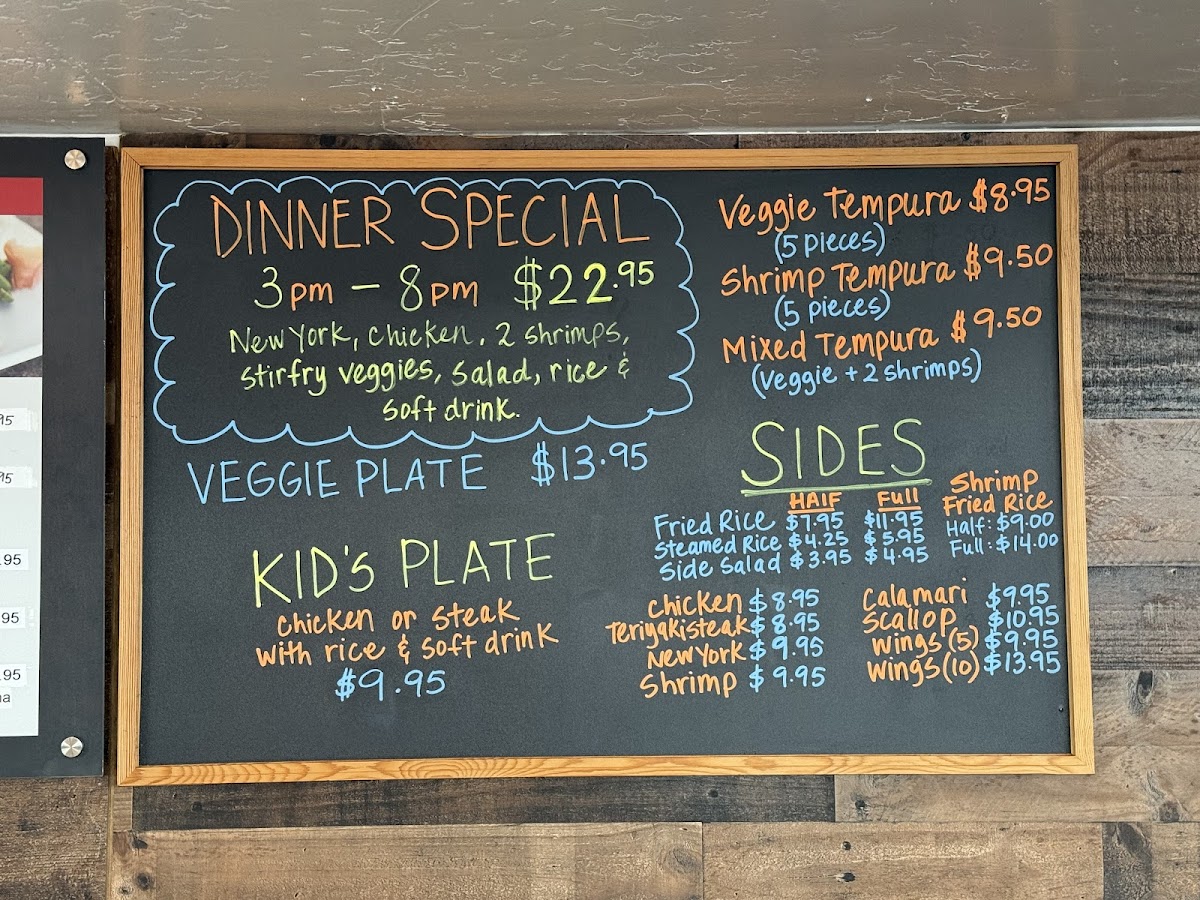 DINNER SPECIAL
3pm - 8pm $22.95
New York, chicken, 2 shrimps,
stirfry veggies, salad, rice &
soft drink.
VEGGIE PLATE $13.95
KID'S PLATE
chicken or steak
with rice & soft drink
$9.95
Veggie Tempura $8.95
(5 pieces)
Shrimp Tempura $9.50
(5 pieces)
Mixed Tempura $9.50
(Veggie + 2 shrimps)
SIDES
HAlF Full
Fried Rice $7.95 $11.95
Steamed Rice $4.25 $5.95
Side Salad $3.95 $4.95
Shrimp
Fried Rice
Half: $9.00
Full: $14.00
chicken $8.95
Teriyaki steak $8.95
New York $9.95
Shrimp $9.95
Calamari $9.95
Scallop $10.95
Wings (5) $9.95
Wings (10) $13.95
95
95
.95
95
.95